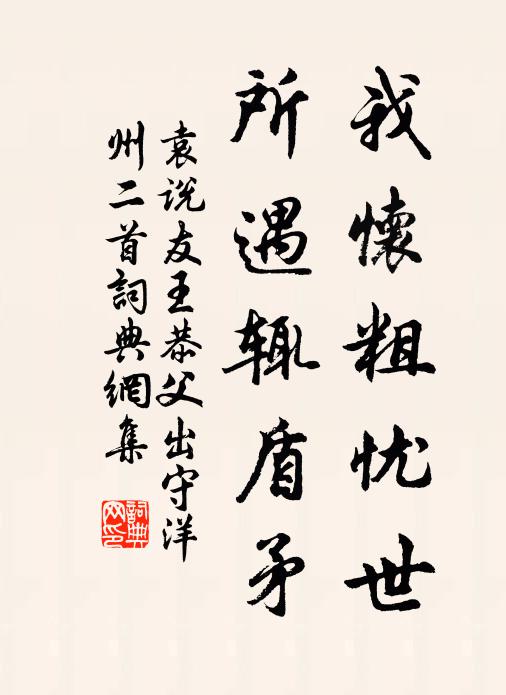 我懷粗忧世
所遇辄盾矛
袁说友王恭父出守洋
州二首詞典網集
詞典
网印